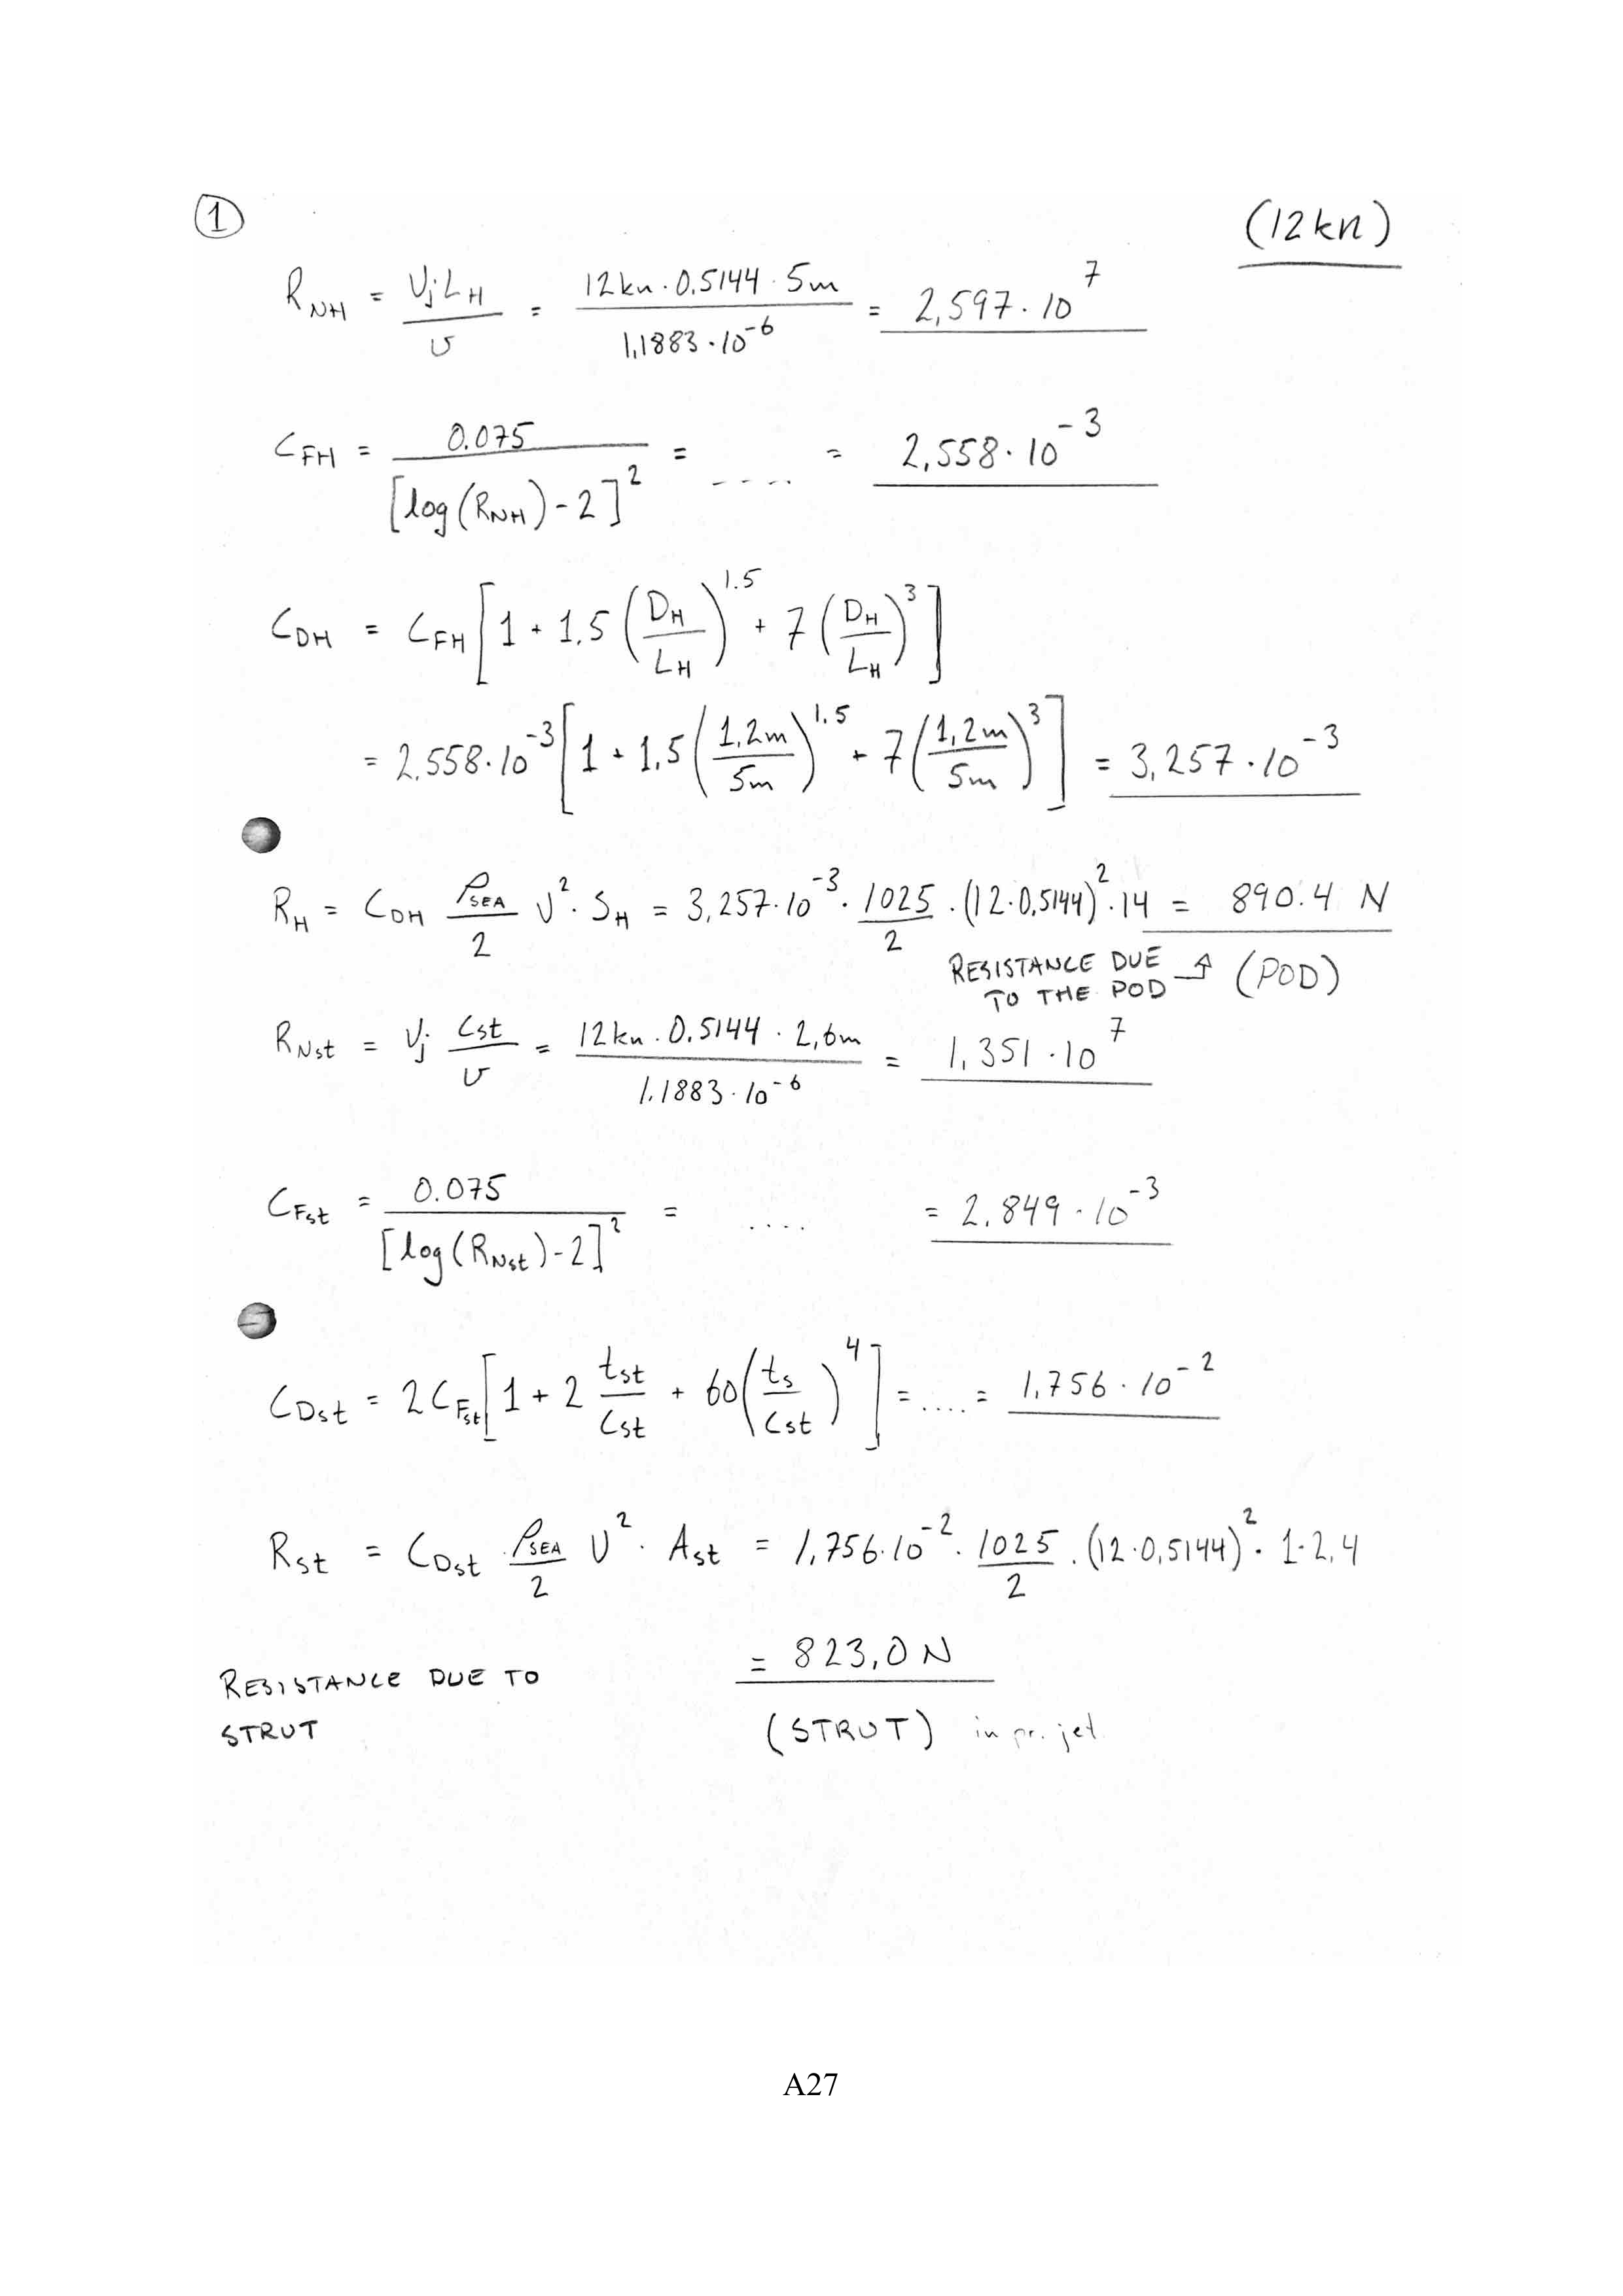 ① (12kn)
R_NH = U_j L_H / υ = 12kn · 0.5144 · 5m / 1,1883 · 10^-6 = 2,597 · 10^7
C_FH = 0.075 / [log(R_NH) - 2]^2 = .... = 2,558 · 10^-3
C_DH = C_FH [1 + 1.5 (D_H / L_H)^1.5 + 7 (D_H / L_H)^3]
= 2.558 · 10^-3 [1 + 1,5 (1,2m / 5m)^1.5 + 7 (1,2m / 5m)^3] = 3,257 · 10^-3
R_H = C_DH ρ_SEA / 2 U^2 · S_H = 3,257 · 10^-3 · 1025 / 2 · (12 · 0,5144)^2 · 14 = 890.4 N
RESISTANCE DUE (POD)
TO THE POD
R_Nst = U_j Cst / υ = 12kn · 0.5144 · 2,6m / 1.1883 · 10^-6 = 1,351 · 10^7
C_Fst = 0.075 / [log(R_Nst) - 2]^2 = .... = 2.849 · 10^-3
C_Dst = 2 C_Fst [1 + 2 tst / Cst + 60 (ts / Cst)^4] = .... = 1,756 · 10^-2
Rst = C_Dst · ρ_SEA / 2 U^2 · Ast = 1,756 · 10^-2 · 1025 / 2 · (12 · 0,5144)^2 · 1 · 2,4
= 823,0 N
RESISTANCE DUE TO
STRUT
(STRUT) in pr. jet
A27